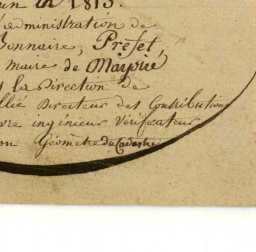 un 1813.
administration de
Bonnaire, Préfet,
maire de
la Direction de
Directeur des Contributions
ingénieur Vérificateur
Géomètre du Cadastre